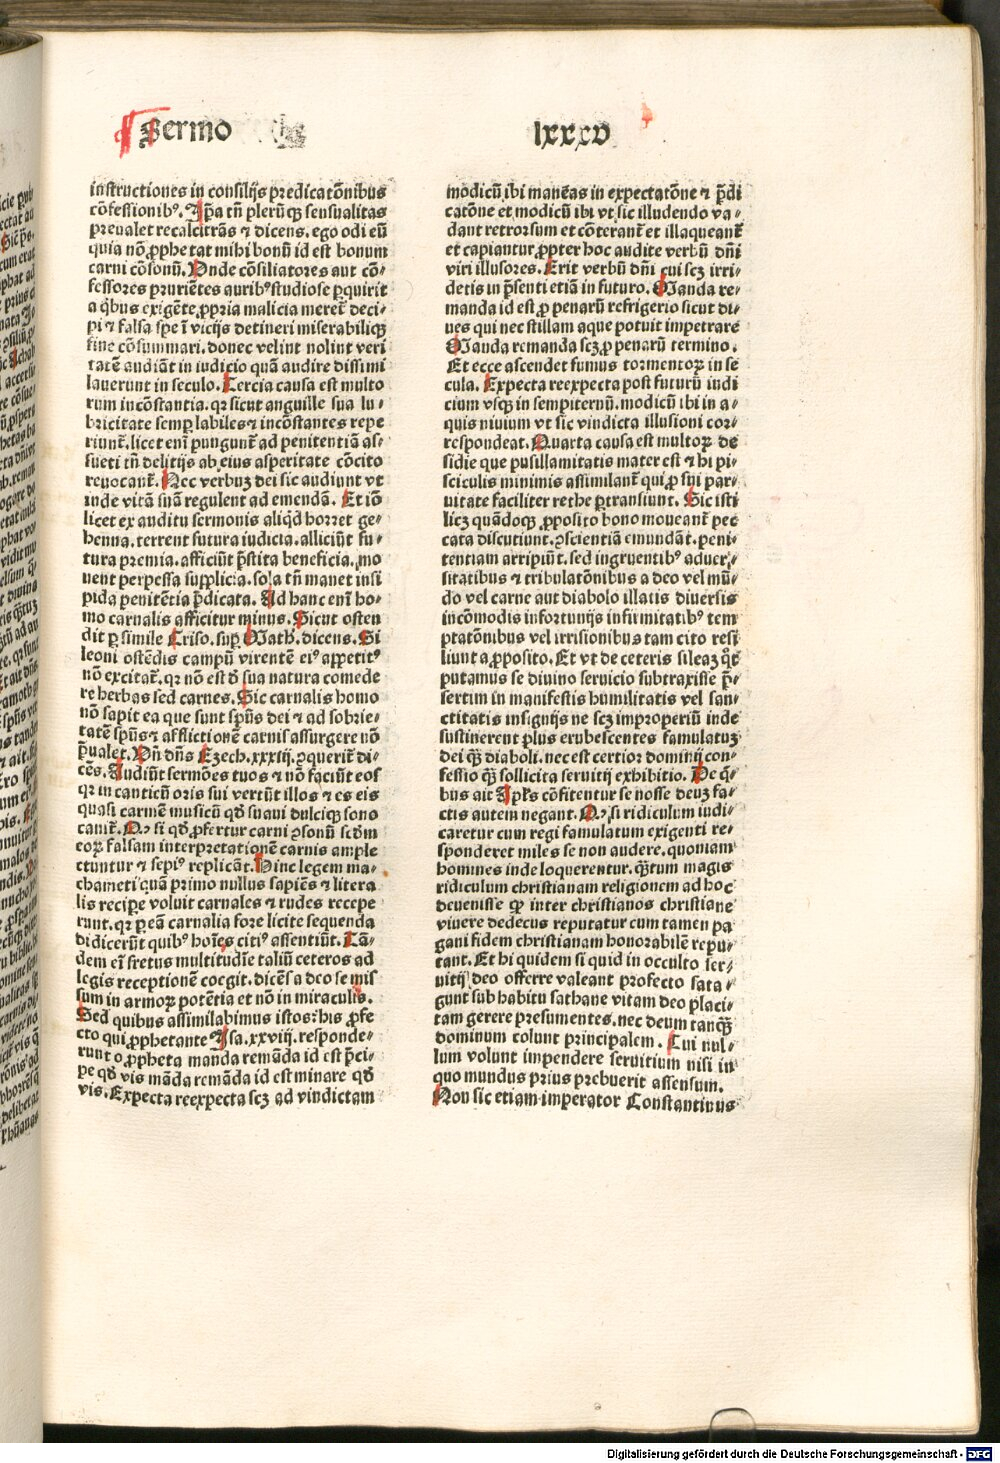 Sermo
lxxxv
instructiones in consilijs predicatōnibus
cōfessionibꝰ. Ip̄a tn̄ plerūqꝫ sensualitas
preualet recalcitrās & dicens. ego odi eū
quia nō ꝓphetat mihi bonū id est bonum
carni cōsonū. Unde cōsiliatores aut cō⸗
fessores pruriētes auribꝰ studiose ꝑquirit
a qͥbus exigēte ꝓpria malicia meret̄ deci⸗
pi & falsa spe ī vicijs detineri miserabiliqꝫ
fine cōsummari. donec velint nolint veri
tatē audiāt in iudicio quā audire dissimi
lauerunt in seculo. Tercia causa est multo
rum incōstantia. qꝛ sicut anguille sua lu⸗
bricitate semꝑ labiles & incōstantes repe
riunt̄. licet eni pungunt̄ ad penitentiā as⸗
sueti tn̄ delitijs ab eius asperitate cōcito
reuocant̄. Nec verbuꝫ dei sic audiunt vt
inde vitā suā regulent ad emendā. Et iō
licet ex auditu sermonis aliqͥd horret ge⸗
henna. terrent futura iudicia. alliciūt fu⸗
tura premia. afficiūt p̄stita beneficia. mo
uent perpessa supplicia. sola tn̄ manet insi
pida penitētia p̄dicata. Ad hanc eni ho⸗
mo carnalis afficitur minus. Sicut osten
dit ꝑ simile Criso. suꝑ Math. dicens. Si
leoni ostēdis campū virentē eiꝰ appetitꝰ
nō excitat̄. qꝛ nō est ō sua natura comede
re herbas sed carnes. Sic carnalis homo
nō sapit ea que sunt spūs dei & ad sobrie⸗
tatē spūs & afflictionē carnis assurgere nō
p̄ualet. Un̄ dn̄s Ezech. xxxiij. ꝯquerit̄ di⸗
cēs. Audiūt sermōes tuos & nō faciūt eos
qꝛ in canticū oris sui vertūt illos & es eis
quasi carmē musicū qd̄ suaui dulciqꝫ sono
canit̄. si qd̄ ꝓfertur carni ꝯsonū scd̄m
eoꝝ falsam interpretationē carnis ample
ctuntur & sepiꝰ replicāt. Hinc legem ma⸗
chameti quā primo nullus sapiēs & litera
lis reciꝑe voluit carnales & rudes recepe
runt. qꝛ ꝑ eā carnalia fore licite sequenda
didicerūt quibꝰ hoīes citiꝰ assentiūt. Tā⸗
dem eī fretus multitudīe taliū ceteros ad
legis receptionē coegit. dicēs a deo se mis
sum in armoꝝ potētia et nō in miraculis.
Sed quibus assimilabimus istos: his ꝓfe
cto qui ꝓphetante Isa. xxviij. responde⸗
runt o ꝓpheta manda remanda id est p̄ci⸗
pe qd̄ vis māda remāda id est minare qd̄
vis. Expecta reexpecta scꝫ ad vindictam
modicū ibi maneas in expectatōne & p̄di
catōne et modicū ibi vt sic illudendo va⸗
dant retrorsum et cōterant̄ et illaqueant̄
et capiantur ꝓpter hoc audite verbū dn̄i
viri illusores. Erit verbū dn̄i cui scꝫ irri⸗
detis in p̄senti etiā in futuro. Manda re⸗
manda id est ꝓ penarū refrigerio sicut di⸗
ues qui nec stillam aque potuit impetrare
Manda remanda scꝫ ꝓ penarū termino.
Et ecce ascendet fumus tormentoꝝ in se
cula. Expecta reexpecta post futurū iudi
cium vsqꝫ in sempiternū. modicū ibi in a⸗
quis niuium vt sic vindicta illusioni cor⸗
respondeat. Quarta causa est multoꝝ de
sidie que pusillamitatis mater est & hi pi⸗
sciculis minimis assimilant̄ qui ꝓ sui par⸗
uitate faciliter rethe ꝑtransiunt. Sic isti
licꝫ quādoqꝫ ꝓposito bono moueant̄ pec
cata discutiunt. ꝯscientiā emundāt. peni⸗
tentiam arripiūt. sed ingruentibꝰ aduer⸗
sitatibus & tribulatōnibus a deo vel mū⸗
do vel carne aut diabolo illatis diuersis
incōmodis infortunijs infirmitatibꝰ tem
ptatōnibus vel irrisionibus tam cito resi
liunt a ꝓposito. Et vt de ceteris sileaꝫ qͦt
putamus se diuino seruicio subtraxisse p̄⸗
sertim in manifestis humilitatis vel san⸗
ctitatis insignijs ne scꝫ improperiū inde
sustinerent plus erubescentes famulatuꝫ
dei qꝫ̄ diaboli. nec est certior dominij con⸗
fessio qꝫ̄ sollicita seruitij exhibitio. De qͥ⸗
bus ait Apl̄s cōfitentur se nosse deuꝫ fa⸗
ctis autem negant. si ridiculum iudi⸗
caretur cum regi famulatum exigenti re⸗
sponderet miles se non audere. quoniam
homines inde loquerentur. qꝫ̄tum magis
ridiculum christianam religionem ad hoc
deuenisse ꝙ inter christianos christiane
viuere dedecus reputatur cum tamen pa
gani fidem christianam honorabilē repu⸗
tant. Et hi quidem si quid in occulto ser⸗
uitij deo offerre valeant profecto sata⸗
gunt sub habitu sathane vitam deo placi⸗
tam gerere presumentes. nec deum tanqꝫ̄
dominum colunt principalem. Cui nul⸗
lum volunt impendere seruitium nisi in
quo mundus prius prebuerit assensum.
Non sic etiam imperator Constantinus
Digitalisierung gefördert durch die Deutsche Forschungsgemeinschaft - DFG